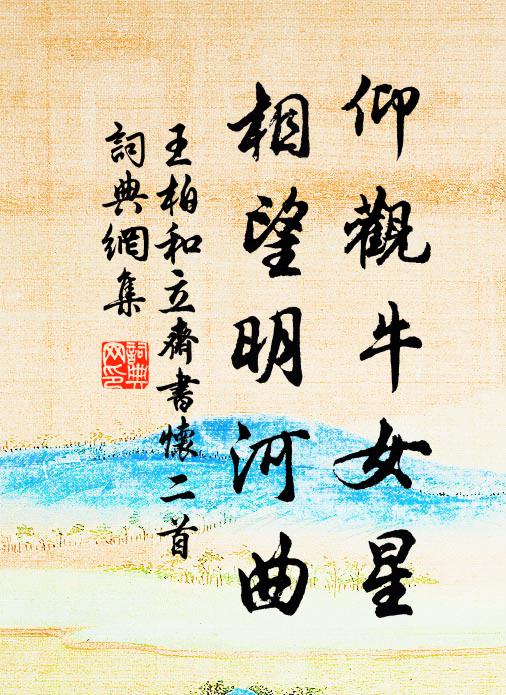 仰觀牛女星
相望明河曲
王柏和立齋書懷二首
詞典網集
詞典
网印